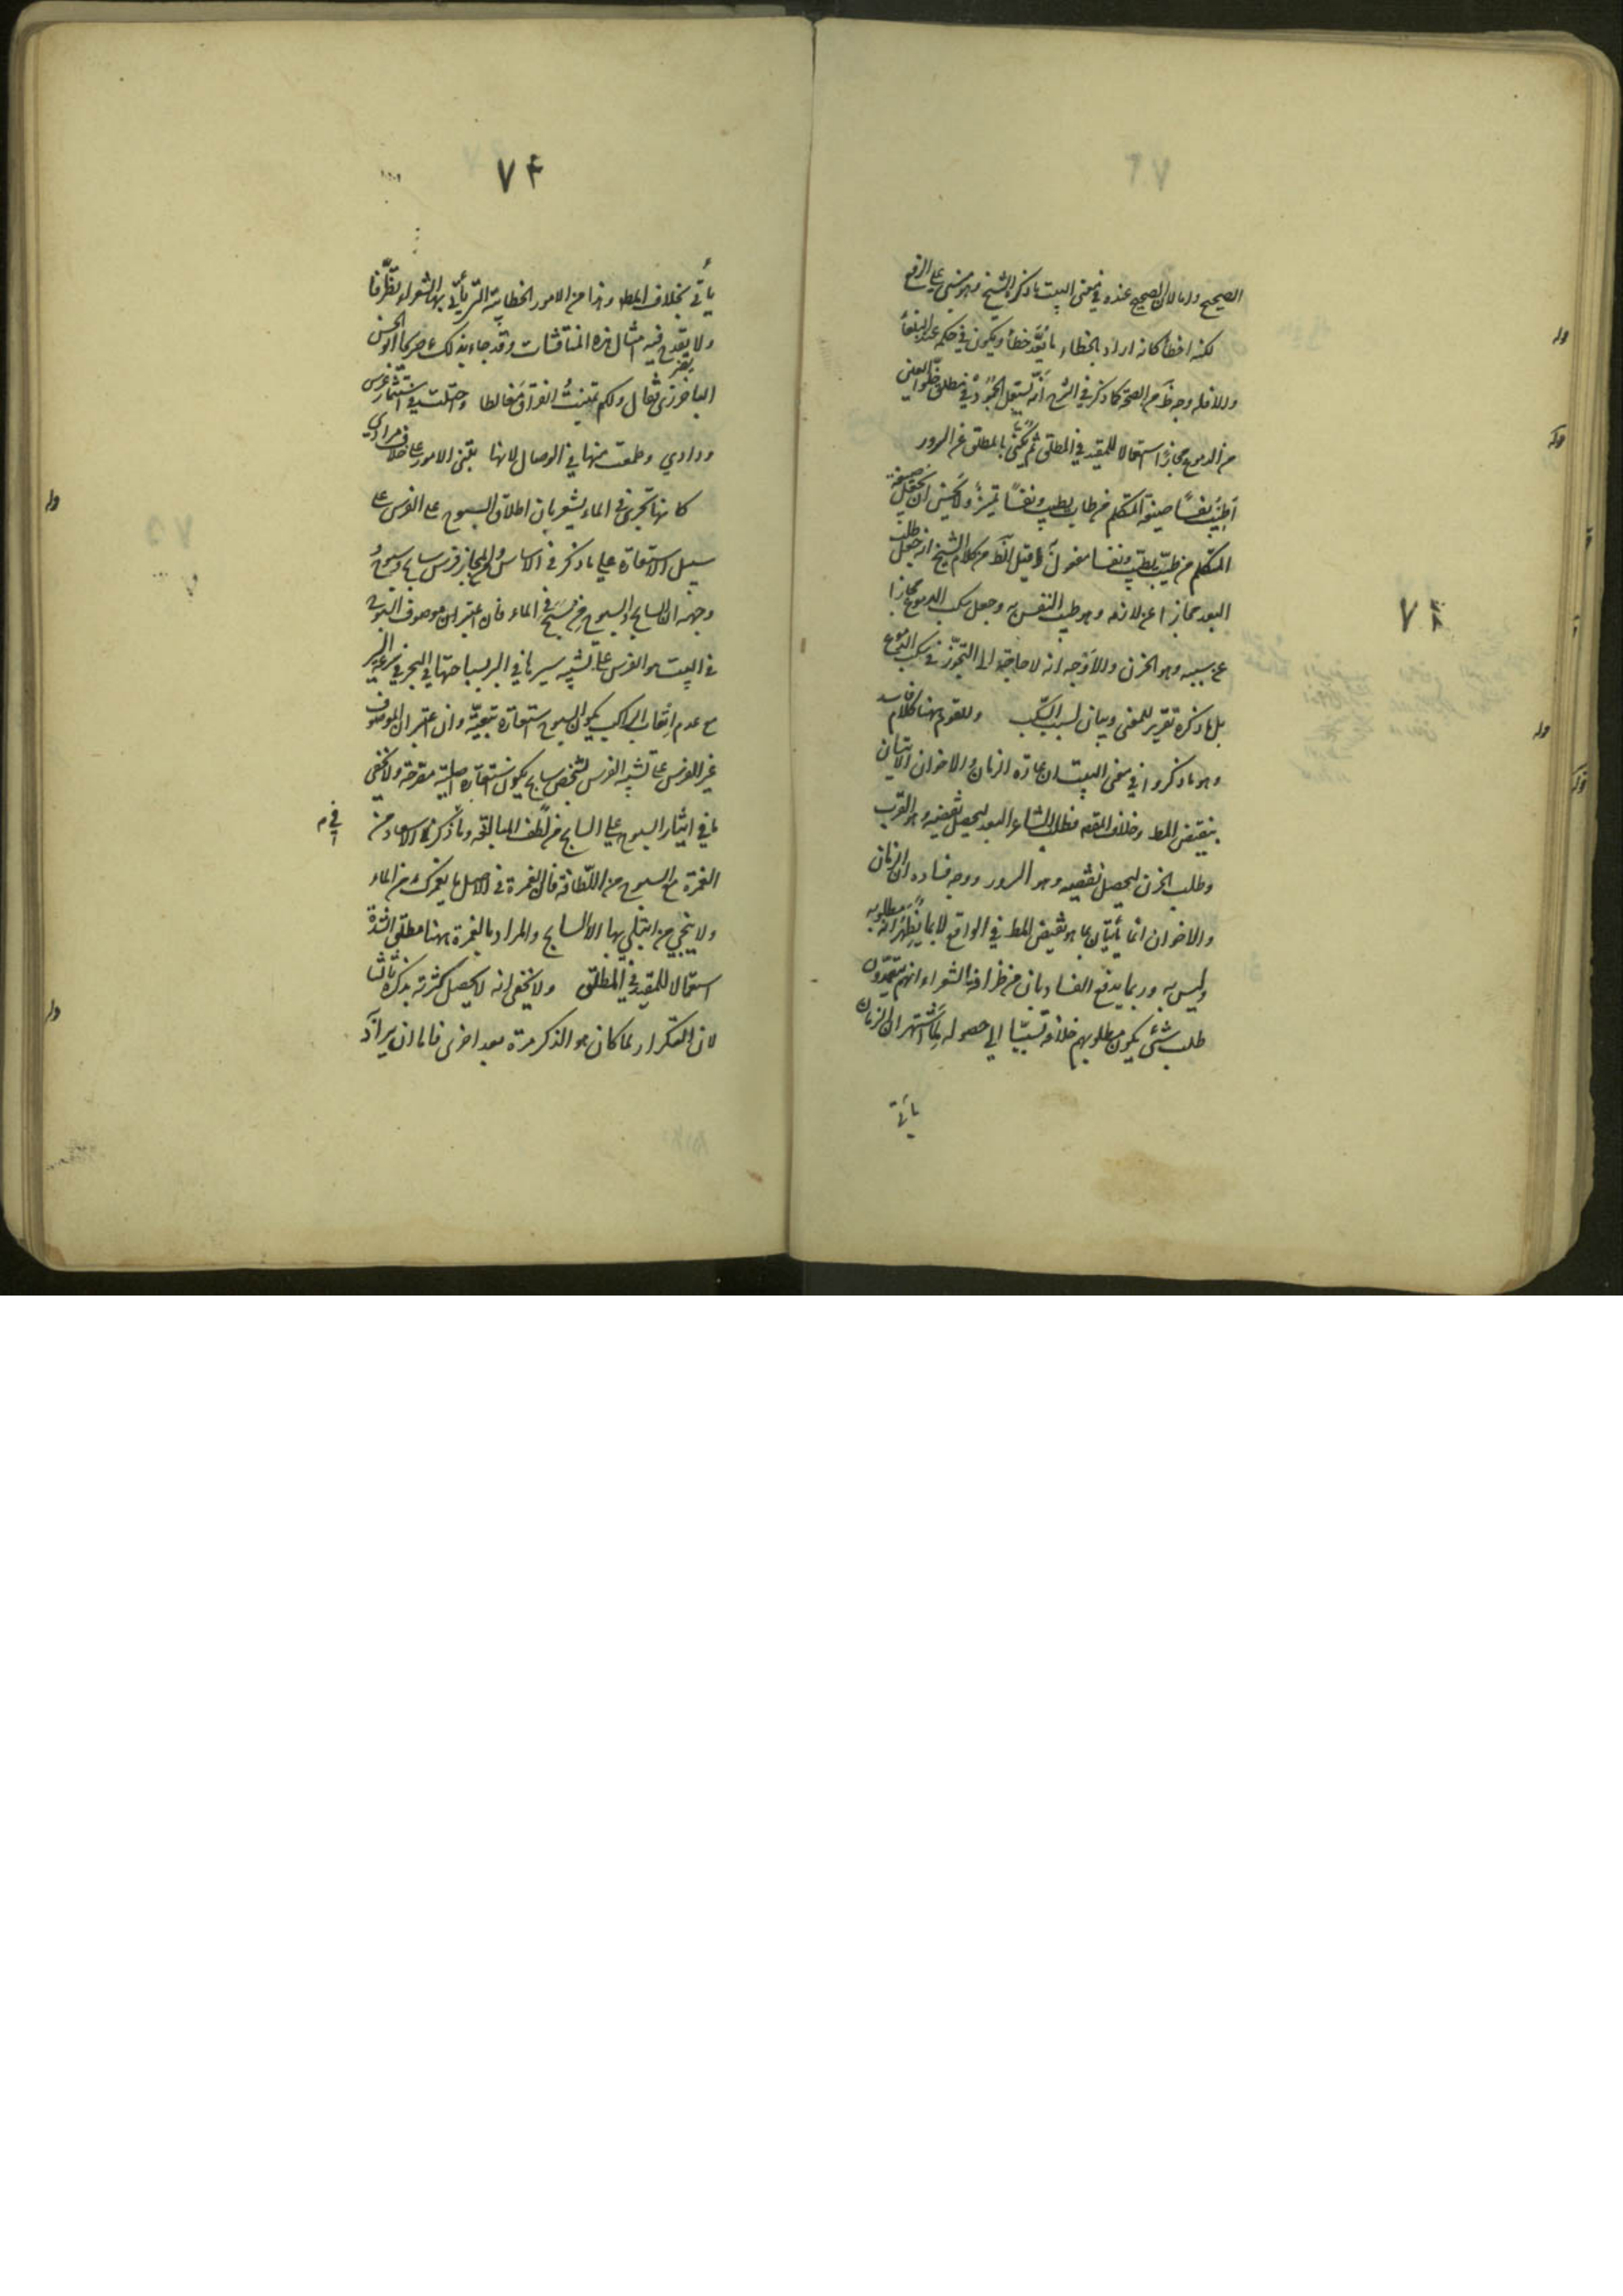 الصحيح واما لان الصحيح عنده في معنى البيت ما ذكره الشيخ وهو مبني على الرفع
لكنه اخطأ كانه اراد بالخطاء ما يُعَدّ خطأ ويكون في حكمه عند البلغاء
والا فله وجه من الصحة كما ذكر في الشرح انه يستعمل الجمود في مطلق خلو العين
من الدموع مجازا استعمالا للمقيد في المطلق ثم يكنى بالمطلق عن السرور
اطيب نفسًا صيغة المتكلم من طاب يطيب ونفسًا تميز ولا يحسن ان يجعل صيغة
المتكلم من طيب يطيب ونفسا مفعول له وقيل الظ من كلام الشيخ انه جعل طلب
البعد مجازا عن لازمه وهو طيب النفس به وجعل سكب الدموع مجازا
عن سببه وهو الحزن والاوجه انه لا حاجة الى التجوّز في سكب الدموع
بل ما ذكره تقرير للمعنى وبيان لسبب السكب وللقوم ههنا كلام فاسد
وهو ما ذكروا في معنى البيت ان عادة الزمان والاخوان الاتيان
بنقيض المط وخلاف المقصـ فطلب الشاعر البعد ليحصل نقيضه وهو القرب
وطلب الحزن ليحصل نقيضه وهو السرور ووجه فساده ان الزمان
والاخوان انما يأتيان بما هو نقيض المط في الواقع لا بما يُظهَر انه مطلوبه
وليس به وربما يدفع الفساد بان من ظرافة الشعراء انهم يتعمدون
طلب شئ يكون مطلوبهم خلافه تسببا الى حصوله لِما اشتهر ان الزمان
يأتي
٧٤
يأتى بخلاف المط وهذا من الامور الخطابية التي يأتي بها الشعراء تظرّفا
ولا يقدح فيه امثال هذه المناقشات وقد جاء بذلك صريحا ابو الحسن
الباخرزى فقال ولكم تمنيتُ الفراق مغالطا واحتلت في استثمار غرس
ودادي وطمعت منها في الوصال لانها تبنى الامور على خلاف مرادي
كانها تجرى في الماء يشعر بان اطلاق السبوح على الفرس على
سبيل الاستعارة على ما ذكر في الاساس والمجاز فرس سابح وسبوح
وجهه ان السابح والسبوح من سبح في الماء فان اعتبر ان موصوف السبوح
في البيت هو الفرس على تشبيه سيرها في البر بسباحتها في البحر في سرعة السير
مع عدم اتعاب الراكب يكون السبوح استعارة تبعية وان اعتبر ان الموصوف
غير الفرس على تشبيه الفرس بشخص سابح يكون استعارة اصلية مصرحة ولا يخفى
ما في ايثار السبوح على السابح من لطف المبالغة وما في ذكر الاسعاد من
الغمرة مع السبوح من اللطافة فان الغمرة في الاصل ما يغمرك من الماء
ولا ينجي من ابتلى بها الا السابح والمراد بالغمرة ههنا مطلق الشدة
استعمالا للمقيد في المطلق ولا يخفى انه لا يحصل كثرته بذكره ثالثا
لان التكرار لما كان هو الذكر مرة بعد اخرى فاما ان يراد